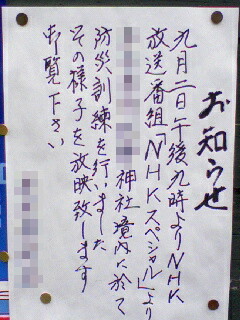 お知らせ
九月一日午後九時よりNHK
放送番組「NHKスペシャル」より
神社境内に於て
防災訓練を行いました
その様子を放映致します
御覧下さい